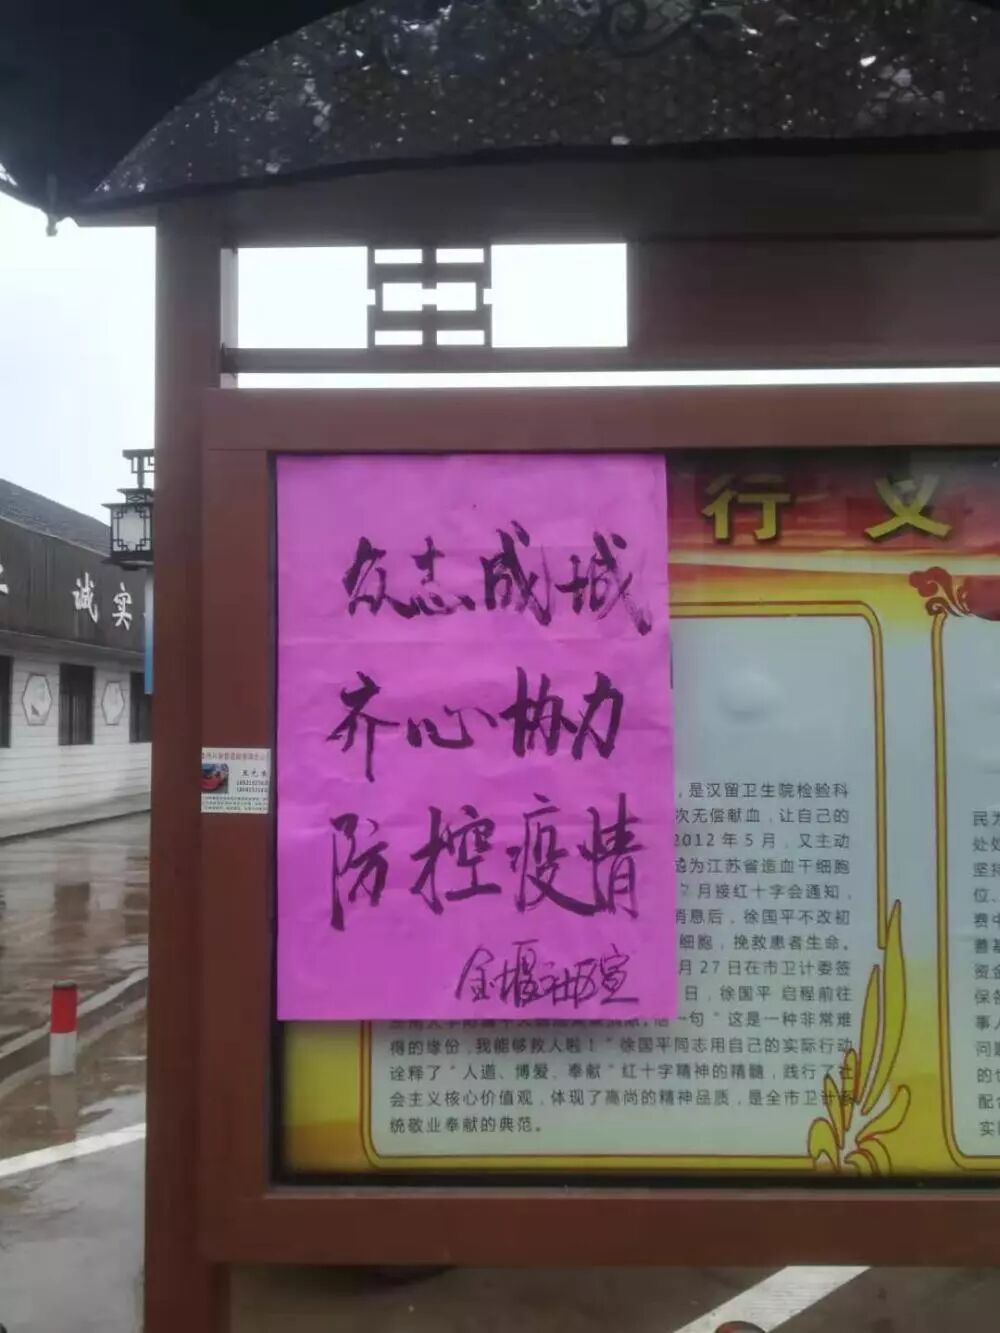 行 义
诚 实
众志成城
齐心协力
防控疫情
，是汉留卫生院检验科
次无偿献血，让自己的
2012年5月，又主动
为江苏省造血干细胞
月接红十字会通知，
消息后，徐国平不改初
细胞，挽救患者生命。
月27日在市卫计委签
日，徐国平 启程前往
一句“这是一种非常难
得的缘份，我能够救人啦！”徐国平同志用自己的实际行动
诠释了“人道、博爱、奉献”红十字精神的精髓，践行了社
会主义核心价值观，体现了高尚的精神品质，是全市卫计系
统敬业奉献的典范。
处处
坚持
位、
赛中
善基
资金
保
事
问题
的也
配合
实